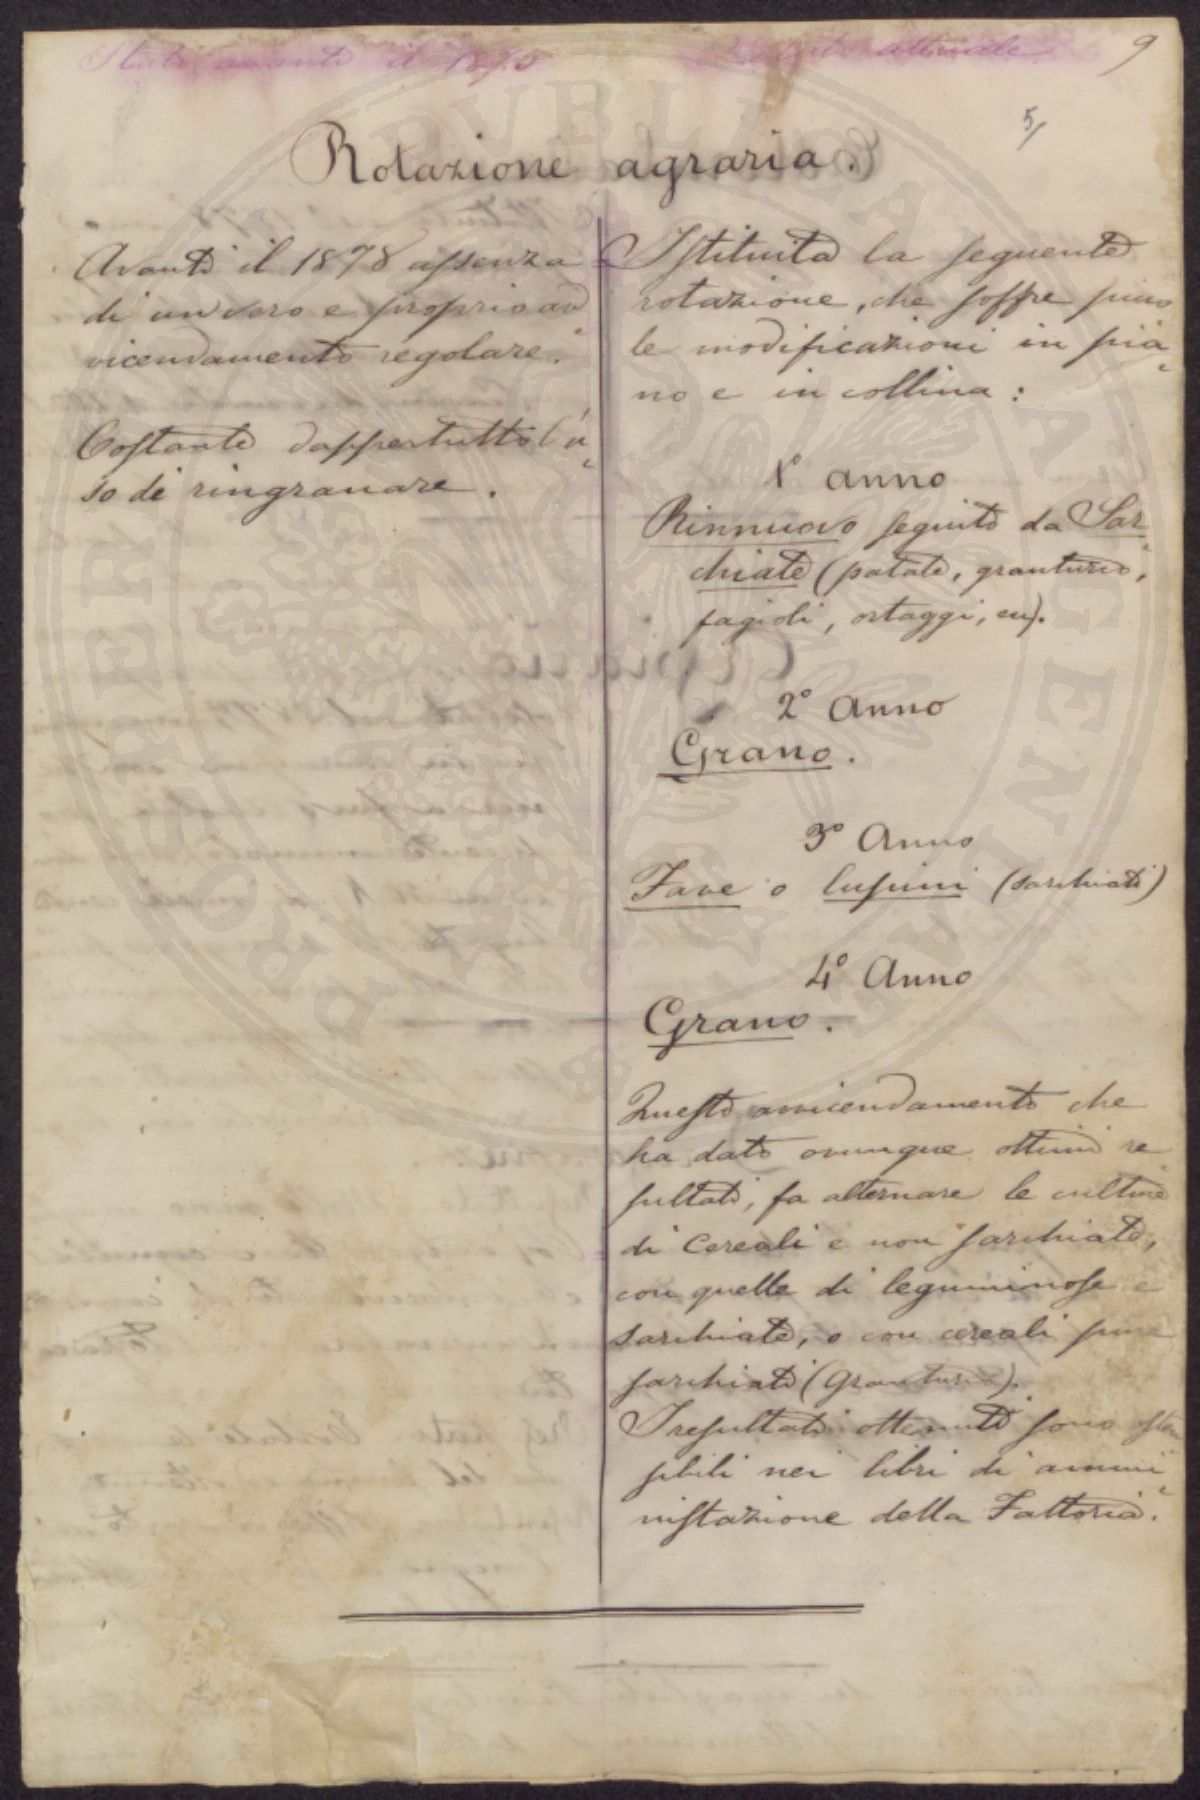 Stato avanti il 1875
Stato attuale
9
5/
Rotazione agraria.
Avanti il 1878 assenza
di un vero e proprio av
vicendamento regolare.
Costante dappertutto l'u
so di ringranare.
Istituita la seguente
rotazione, che soffre picco
le modificazioni in pia
no e in collina:
1° anno
Rinnuovo seguito da Sar
chiate (patate, granturco,
fagioli, ortaggi, ecc).
2° Anno
Grano.
3° Anno
Fave o lupini (sarchiati)
4° Anno
Grano.
Questo avvicendamento che
ha dato ovunque ottimi re
sultati, fa alternare le culture
di cereali e non sarchiate,
con quelle di leguminose e
sarchiate, o con cereali pure
sarchiati (Granturco).
I resultati ottenuti sono osten
sibili nei libri di ammi
nistazione della Fattoria.
PROSDEN PUBLICAE AC GENTILI